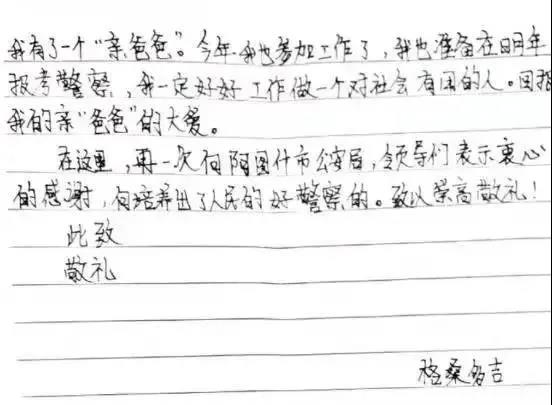 我有了一个“亲爸爸”。今年我也参加工作了，我也准备在明年
报考警察，我一定好好工作做一个对社会有用的人。回报
我的亲“爸爸”的大爱。
在这里，再一次向阿图什市公安局，领导们表示衷心
的感谢，向培养出了人民的好警察的。致以崇高敬礼！
此致
敬礼
格桑多吉